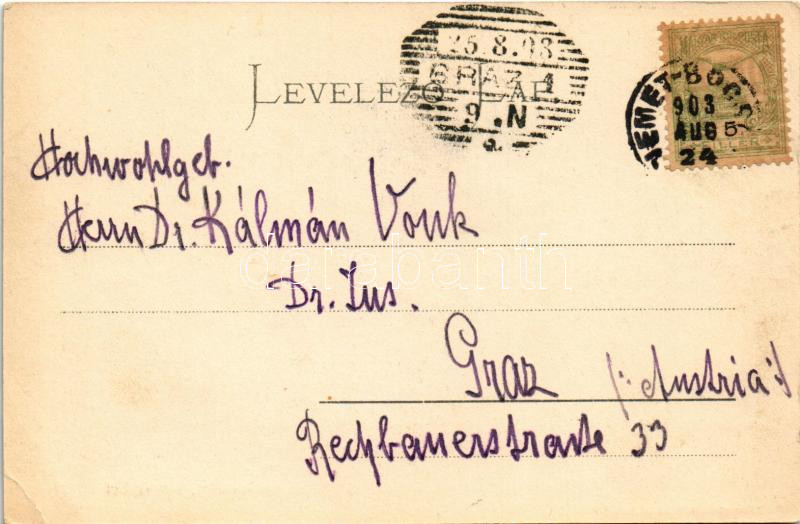 25.8.03
GRAZ 1
9.N
a.
LEVELEZŐ LAP
NÉMET-BOG
903
AUG
24
5
Hochwohlgeb.
Herrn Dr. Kálmán Vonk
darabanth
Dr. Jus.
Graz /: Austria :/
Rechbauerstrasse 33